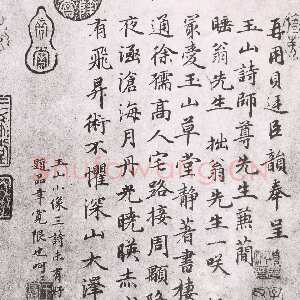 再用貝廷臣韻奉呈
玉山詩師尊先生兼簡
睡翁先生 拙翁先生一咲
最愛玉山草堂静著書棲
通徐孺高人宅路接周顒隐
夜涵滄海月丹光曉暎赤
有飛昇術不懼深山大澤
玉山小侯三詩未有
題品幸寛限也呵